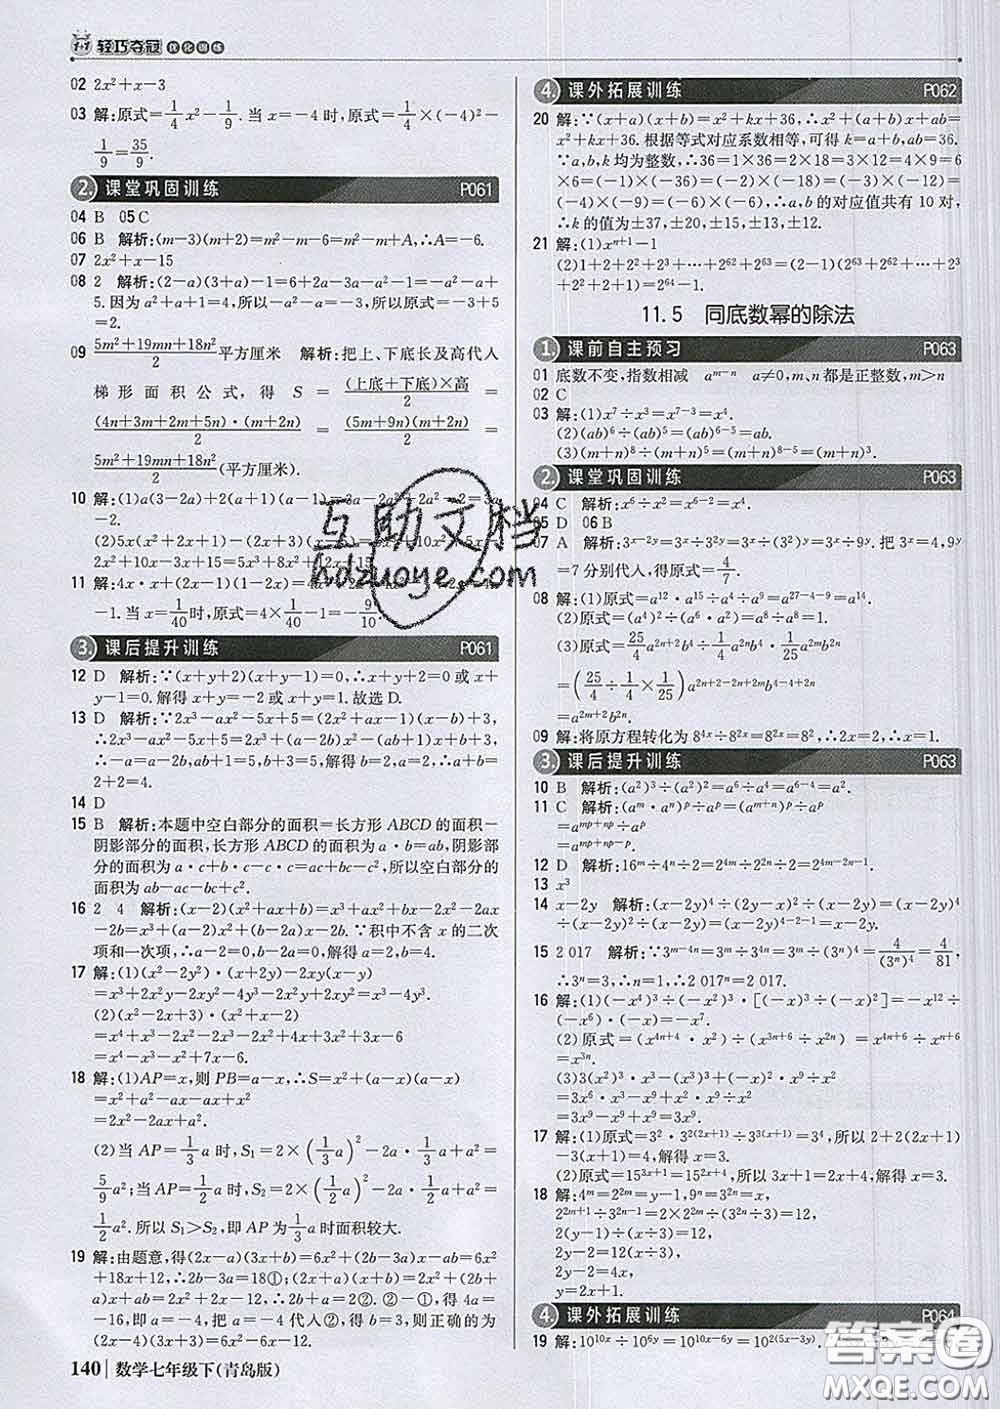 1+1 轻巧夺冠 优化训练
02 2x²+x−3
03 解:原式=1/4x²−1/9. 当 x=−4 时,原式=1/4×(−4)²−
1/9=35/9.
2. 课堂巩固训练 P061
04 B 05 C
06 B 解析:(m−3)(m+2)=m²−m−6=m²−m+A,∴A=−6.
07 2x²+x−15
08 2 解析:(2−a)(3+a)−1=6+2a−3a−a²−1=−a²−a+
5.因为 a²+a+1=4,所以−a²−a=−3,所以原式=−3+5
=2.
09 (5m²+19mn+18n²)/2 平方厘米 解析:把上、下底长及高代入
梯形面积公式,得 S=(上底+下底)×高/2=
(4n+3m+2m+5n)·(m+2n)/2=(5m+9n)(m+2n)/2=
(5m²+19mn+18n²)/2(平方厘米).
10 解:(1)a(3−2a)+2(a+1)(a−1)=3a−2a²+2a²−2=3a
−2.
(2)5x(x²+2x+1)−(2x+3)(x−5)=5x³+10x²+5x−
2x²+10x−3x+15=5x³+8x²+
11 解:4x·x+(2x−1)(1−2x)=4x²
−1.当 x=1/40时,原式=4×1/40−1=−9/10.
3. 课后提升训练 P061
12 D 解析:∵(x+y+2)(x+y−1)=0,∴x+y+2=0 或 x+
y−1=0.解得 x+y=−2 或 x+y=1.故选 D.
13 D 解析:∵2x³−ax²−5x+5=(2x²+ax−1)(x−b)+3,
∴2x³−ax²−5x+5=2x³+(a−2b)x²−(ab+1)x+b+3,
∴−a=a−2b,ab+1=5,b+3=5.解得 b=2,a=2.
14 D
15 B 解析:本题中空白部分的面积=长方形 ABCD 的面积−
阴影部分的面积,长方形 ABCD 的面积为 a·b=ab,阴影部
分的面积为 a·c+b·c−c·c=ac+bc−c²,所以空白部分的
面积为 ab−ac−bc+c².
16 2 4 解析:(x−2)(x²+ax+b)=x³+ax²+bx−2x²−2ax
−2b=x³+(a−2)x²+(b−2a)x−2b.∵积中不含 x 的二次
项和一次项,∴a−2=0,b−2a=0.解得 a=2,b=4.
17 解:(1)(x²−2y²)·(x+2y)−2xy(x−y)
=x³+2x²y−2xy²−4y³−2x²y+2xy²=x³−4y³.
(2)(x²−2x+3)·(x²+x−2)
=x⁴+x³−2x²−2x³−2x²+4x+3x²+3x−6
=x⁴−x³−x²+7x−6.
18 解:(1)AP=x,则 PB=a−x,∴S=x²+(a−x)²
=x²+a²−ax−ax+x²
=2x²−2ax+a².
(2)当 AP=1/3a 时,S₁=2×(1/3a)²−2a·1/3a+a²=
5/9a²;当 AP=1/2a 时,S₂=2×(1/2a)²−2a·1/2a+a²=
1/2a².所以 S₁>S₂,即 AP 为1/3a 时面积较大.
19 解:由题意,得(2x−a)(3x+b)=6x²+(2b−3a)x−ab=6x²
+18x+12,∴2b−3a=18①;(2x+a)(x+b)=2x²+(2b+
a)x+ab=2x²+2x−12,∴2b+a=2②.②−①,得 4a=
−16,即 a=−4,把 a=−4 代入②,得 b=3,则正确的为
(2x−4)(3x+3)=6x²−6x−12.
140 数学七年级下(青岛版)
4. 课外拓展训练 P062
20 解:∵(x+a)(x+b)=x²+kx+36,∴x²+(a+b)x+ab=
x²+kx+36.根据等式对应系数相等,可得 k=a+b,ab=36.
∵a,b 均为整数,∴36=1×36=2×18=3×12=4×9=6
×6=(−1)×(−36)=(−2)×(−18)=(−3)×(−12)=
(−4)×(−9)=(−6)×(−6),∴a,b 的对应值共有 10 对,
∴k 的值为±37,±20,±15,±13,±12.
21 解:(1)xⁿ⁺¹−1
(2)1+2+2²+2³+…+2⁶²+2⁶³=(2−1)(2⁶³+2⁶²+…+2³
+2²+2+1)=2⁶⁴−1.
11.5 同底数幂的除法
1. 课前自主预习 P063
01 底数不变,指数相减 aᵐ⁻ⁿ a≠0,m、n 都是正整数,m>n
02 C
03 解:(1)x⁷÷x³=x⁷⁻³=x⁴.
(2)(ab)⁶÷(ab)⁵=(ab)⁶⁻⁵=ab.
(3)(m+n)⁸÷(m+n)⁵=(m+n)⁸⁻⁵=(m+n)³.
2. 课堂巩固训练 P063
04 C 解析:x⁶÷x²=x⁶⁻²=x⁴.
05 D 06 B
07 A 解析:3ˣ⁻²ʸ=3ˣ÷3²ʸ=3ˣ÷(3²)ʸ=3ˣ÷9ʸ.把 3ˣ=4,9ʸ
=7 分别代入,得原式=4/7.
08 解:(1)原式=a¹²·a¹⁵÷a⁴÷a⁹=a¹²⁺¹⁵⁻⁴⁻⁹=a¹⁴.
(2)原式=(a⁴)²÷(a⁶·a²)=a⁸÷a⁸=1.
(3)原式=25/4a²ⁿb⁴ⁿ÷1/4a²ⁿbⁿ·1/25
=(25/4÷1/4×1/25)
=a²ᵐ⁺²b²ⁿ.
09 解:将原方程转化为 8⁴ˣ÷8²ˣ=8²ˣ=8²,∴2x=2,∴x=1.
3. 课后提升训练 P063
10 B 解析:(a²)³÷a⁴=a⁶÷a⁴=a⁶⁻⁴=a².
11 C 解析:(aᵐ·aⁿ)ᵖ÷aᵖ=(aᵐ⁺ⁿ)ᵖ÷aᵖ
=aᵐᵖ⁺ⁿᵖ÷aᵖ
=aᵐᵖ⁺ⁿᵖ⁻ᵖ.
12 D 解析:16ᵐ÷4ⁿ÷2=2⁴ᵐ÷2²ⁿ÷2=2⁴ᵐ⁻²ⁿ⁻¹.
13 x³
14 x−2y 解析:(x−2y)⁴÷(2y−x)²÷(x−2y)=(x−2y)⁴
÷(x−2y)²÷(x−2y)=(x−2y)⁴⁻²⁻¹=x−2y.
15 2 017 解析:∵3ᵐ⁻⁴ⁿ=3ᵐ÷3⁴ⁿ=3ᵐ÷(3ⁿ)⁴=4/(3ⁿ)⁴=4/81,
∴3ⁿ=3,∴n=1,∴2 017ⁿ=2 017.
16 解:(1)(−x⁴)³÷(−x²)³·[(−x)³÷(−x)²]=−x¹²÷
(−x⁶)·(−x)=−x⁷.
(2)原式=(x⁴ⁿ⁺⁴·x²)÷(x·xⁿ⁺⁵)=x⁴ⁿ⁺⁶÷xⁿ⁺⁶
=x³ⁿ.
(3)3(x²)³·x³−(x³)³+(−x)²·x⁹÷x²
=3x⁶·x³−x⁹+x²·x⁹÷x²
=3x⁹−x⁹+x⁹=3x⁹.
17 解:(1)原式=3²·3²⁽²ˣ⁺¹⁾÷3³⁽ˣ⁺¹⁾=3⁴,所以 2+2(2x+1)
−3(x+1)=4,解得 x=3.
(2)原式=15³ˣ⁺¹=15²ˣ⁺⁴,所以 3x+1=2x+4,解得 x=3.
18 解:4ᵐ=2²ᵐ=y−1,9ⁿ=3²ⁿ=x,
2²ᵐ⁺¹÷3²ⁿ⁻¹=2×2²ᵐ÷(3²ⁿ÷3)=12,
2(y−1)÷(x÷3)=12,
2y−2=12(x÷3),
2y−2=4x,
y=2x+1.
4. 课外拓展训练 P064
19 解:10¹⁰ˣ÷10⁶ʸ=10¹⁰ˣ⁻⁶ʸ=
互助文档
hdzuoye.com
答案圈
MXQE.COM